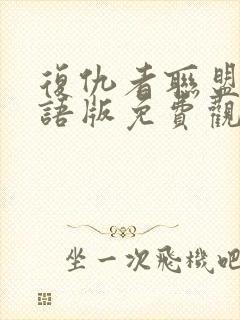 復仇者聯盟
語版免費觀
坐一次飛機吧